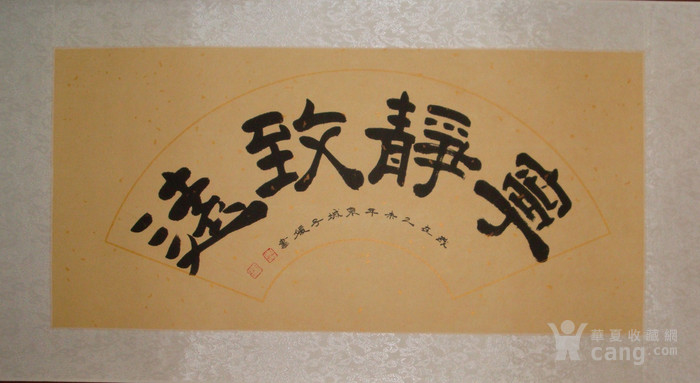 寧靜致遠
歲在乙未年東城子俊書
華夏收藏網
cang.com